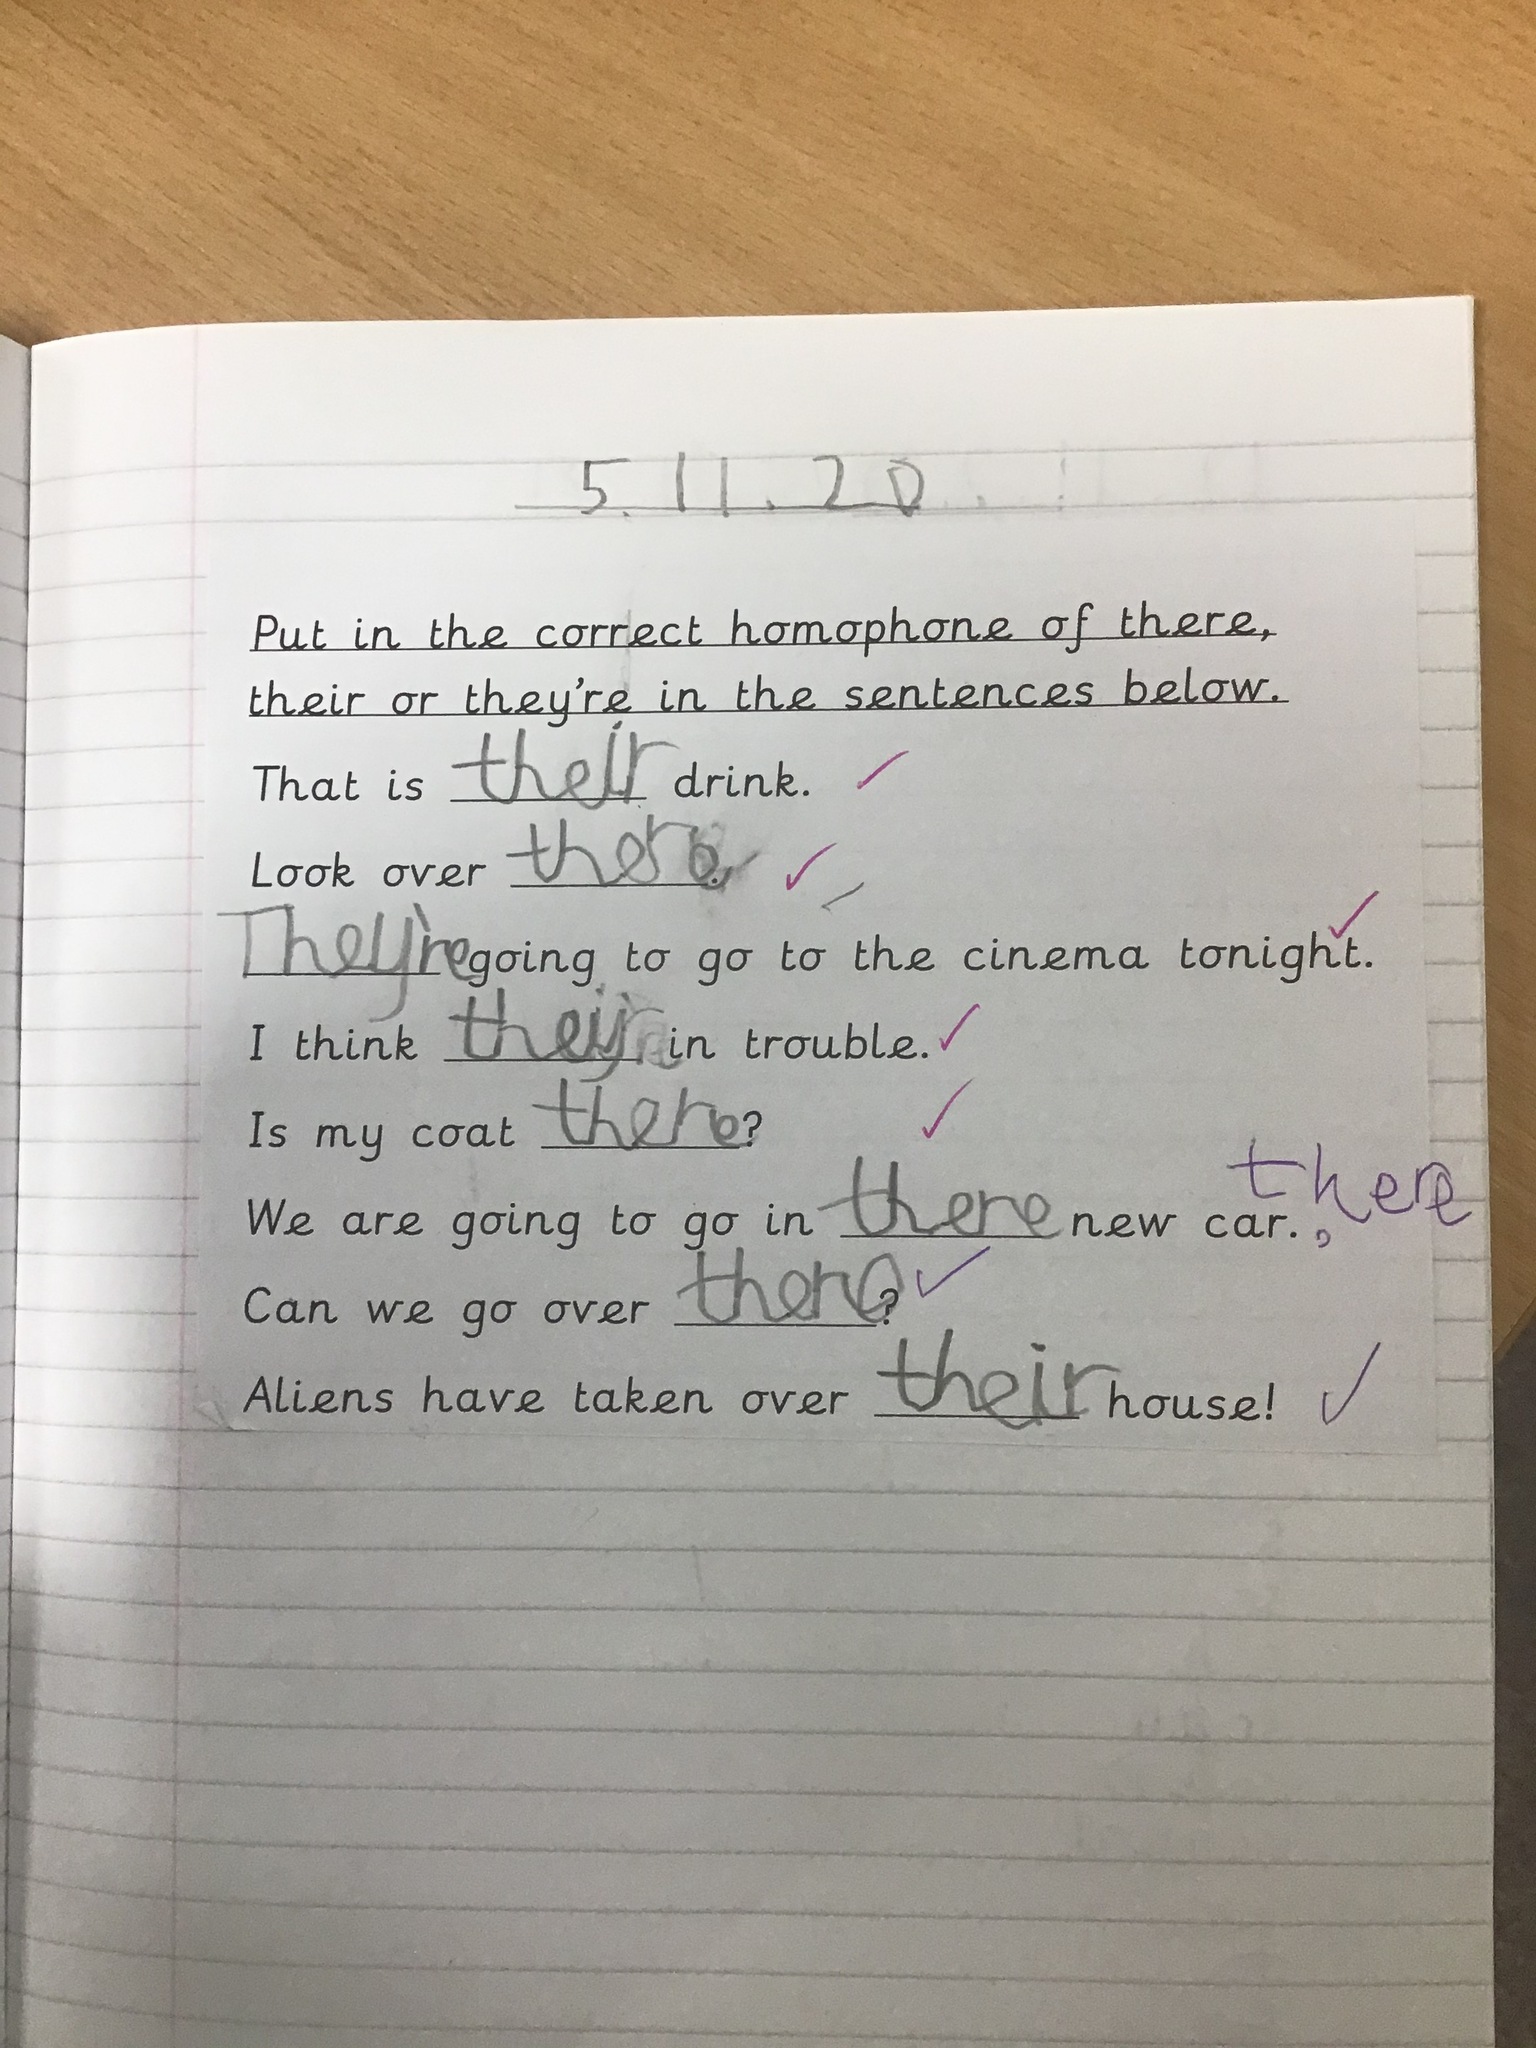 5.11.20
Put in the correct homophone of there,
their or they're in the sentences below.
That is their drink.
Look over there.
They're going to go to the cinema tonight.
I think they're in trouble.
Is my coat there?
We are going to go in there new car. there
Can we go over there?
Aliens have taken over their house!